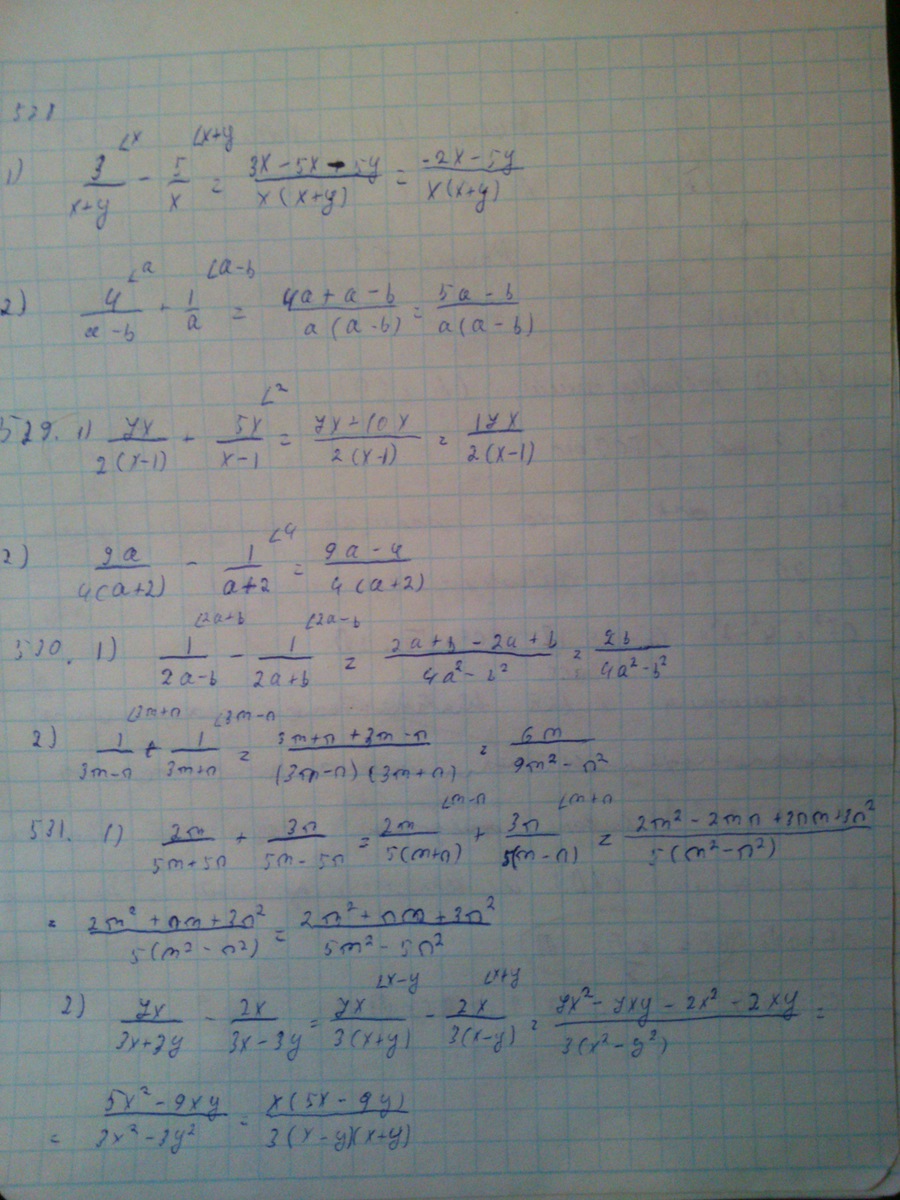 528
1) 3/(x+y) ∠x - 5/x ∠x+y = (3x-5x-5y)/(x(x+y)) = (-2x-5y)/(x(x+y))
2) 4/(a-b) ∠a + 1/a ∠a-b = (4a+a-b)/(a(a-b)) = (5a-b)/(a(a-b))
529. 1) 7x/(2(x-1)) + 5x/(x-1) ∠2 = (7x+10x)/(2(x-1)) = 17x/(2(x-1))
2) 9a/(4(a+2)) - 1/(a+2) ∠4 = (9a-4)/(4(a+2))
530. 1) 1/(2a-b) ∠2a+b - 1/(2a+b) ∠2a-b = (2a+b-2a+b)/(4a²-b²) = 2b/(4a²-b²)
2) 1/(3m-n) ∠3m+n + 1/(3m+n) ∠3m-n = (3m+n+3m-n)/((3m-n)(3m+n)) = 6m/(9m²-n²)
531. 1) 2m/(5m+5n) + 3n/(5m-5n) = 2m/(5(m+n)) ∠m-n + 3n/(5(m-n)) ∠m+n = (2m²-2mn+3nm+3n²)/(5(m²-n²))
= (2m²+nm+3n²)/(5(m²-n²)) = (2m²+nm+3n²)/(5m²-5n²)
2) 7x/(3x+3y) - 2x/(3x-3y) = 7x/(3(x+y)) ∠x-y - 2x/(3(x-y)) ∠x+y = (7x²-7xy-2x²-2xy)/(3(x²-y²)) =
= (5x²-9xy)/(3x²-3y²) = x(5x-9y)/(3(x-y)(x+y))